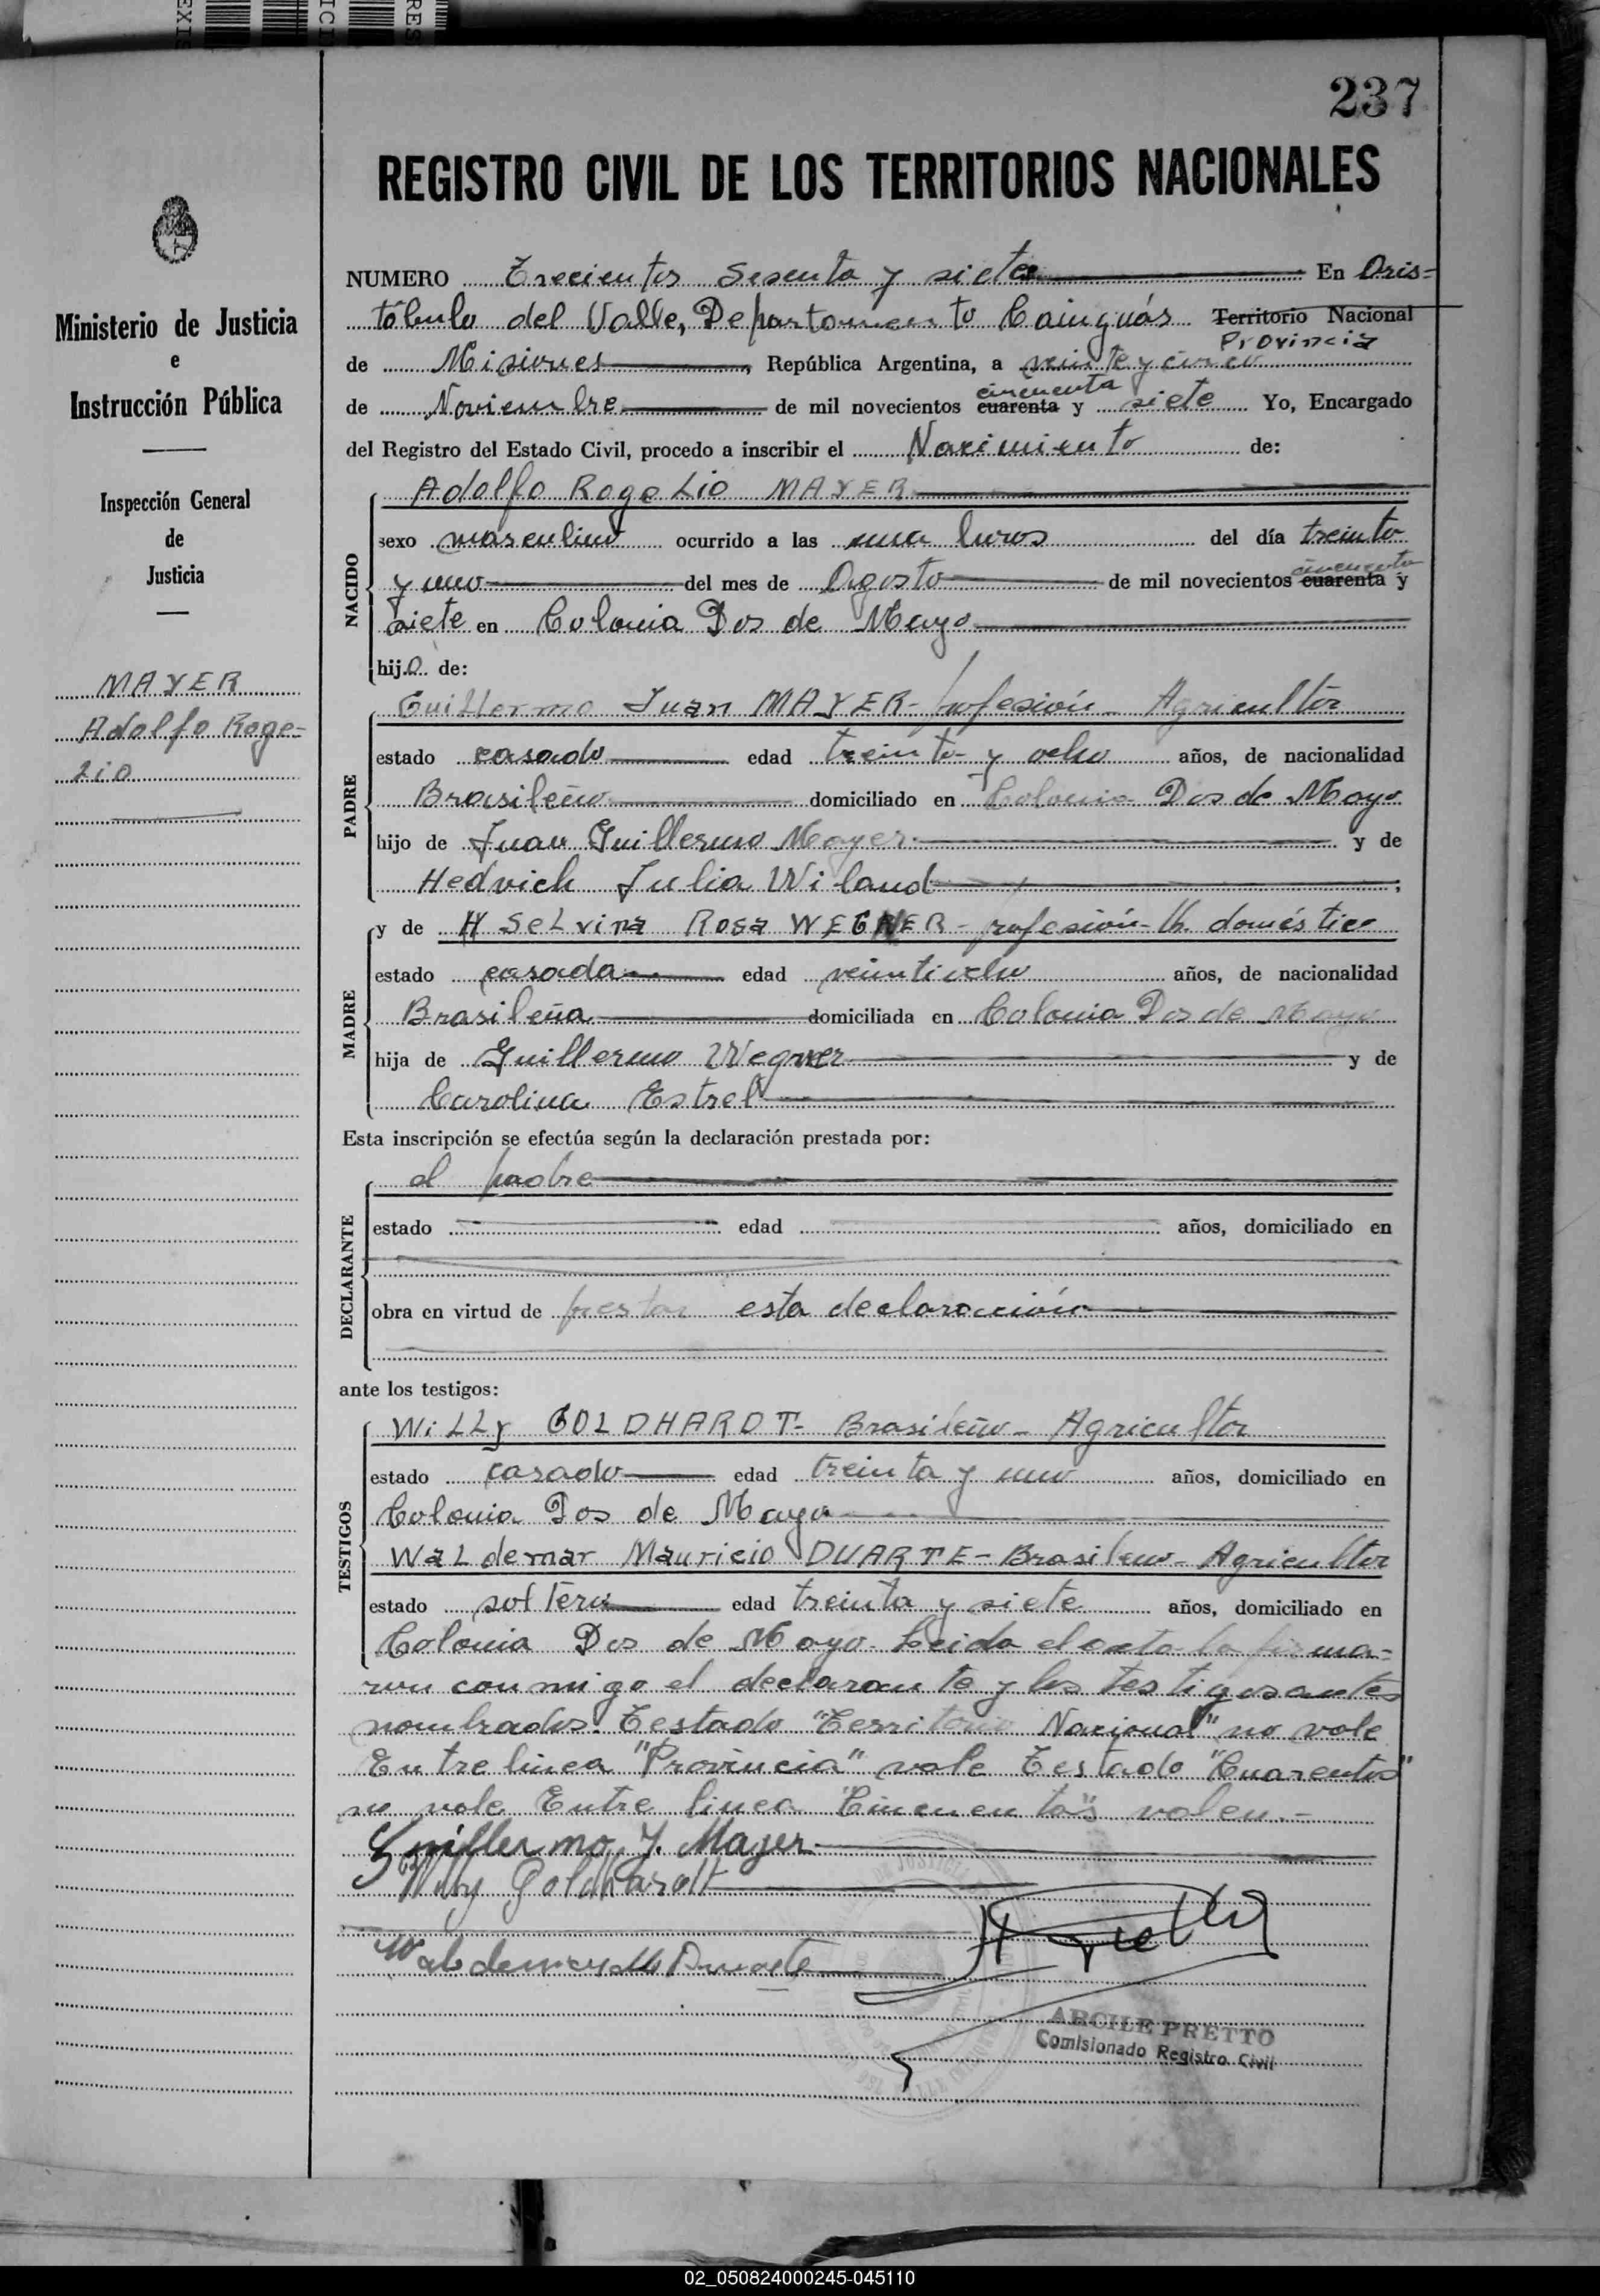 EXIS
ICI
RES
237
REGISTRO CIVIL DE LOS TERRITORIOS NACIONALES
Ministerio de Justicia
e
Instrucción Pública
Inspección General
de
Justicia
MAYER
Adolfo Roge=
lio
NUMERO Trecientos sesenta y siete En Aris=
tóbulo del Valle, Departamento Cainguás Territorio Nacional
Provincia
de Misiones, República Argentina, a veinte y cinco
cincuenta
de Noviembre de mil novecientos cuarenta y siete Yo, Encargado
del Registro del Estado Civil, procedo a inscribir el Nacimiento de:
Adolfo Rogelio MAYER
NACIDO
sexo masculino ocurrido a las una horas del día treinta
cincuenta
y uno del mes de Agosto de mil novecientos cuarenta y
siete en Colonia Dos de Mayo
hijo de:
PADRE
Guillermo Juan MAYER - profesión - Agricultor
estado casado edad treinta y ocho años, de nacionalidad
Brasileño domiciliado en Colonia Dos de Mayo
hijo de Juan Guillermo Mayer y de
Hedvich Julia Wiland;
MADRE
y de Hselvina Rosa WEGNER - profesión - Q. doméstico
estado casada edad veintiocho años, de nacionalidad
Brasileña domiciliada en Colonia Dos de Mayo
hija de Guillermo Wegner y de
Carolina Estrel
Esta inscripción se efectúa según la declaración prestada por:
DECLARANTE
el padre
estado edad años, domiciliado en
obra en virtud de prestar esta declaración
ante los testigos:
TESTIGOS
Willy GOLDHARDT - Brasileño - Agricultor
estado casado edad treinta y uno años, domiciliado en
Colonia Dos de Mayo
Waldemar Mauricio DUARTE - Brasileno - Agricultor
estado soltero edad treinta y siete años, domiciliado en
Colonia Dos de Mayo. Leida el acta la firma=
ron conmigo el declarante y los testigos antes
nombrados. Testado "Territorio Nacional" no vale
Entre linea "Provincia" vale Testado "Cuarentas"
no vale Entre linea "Cincuentas" valen.-
Guillermo J. Mayer
Willy Goldhardt
Waldemar M Duarte
ARCILE PRETTO
Comisionado Registro Civil
02_050824000245-045110